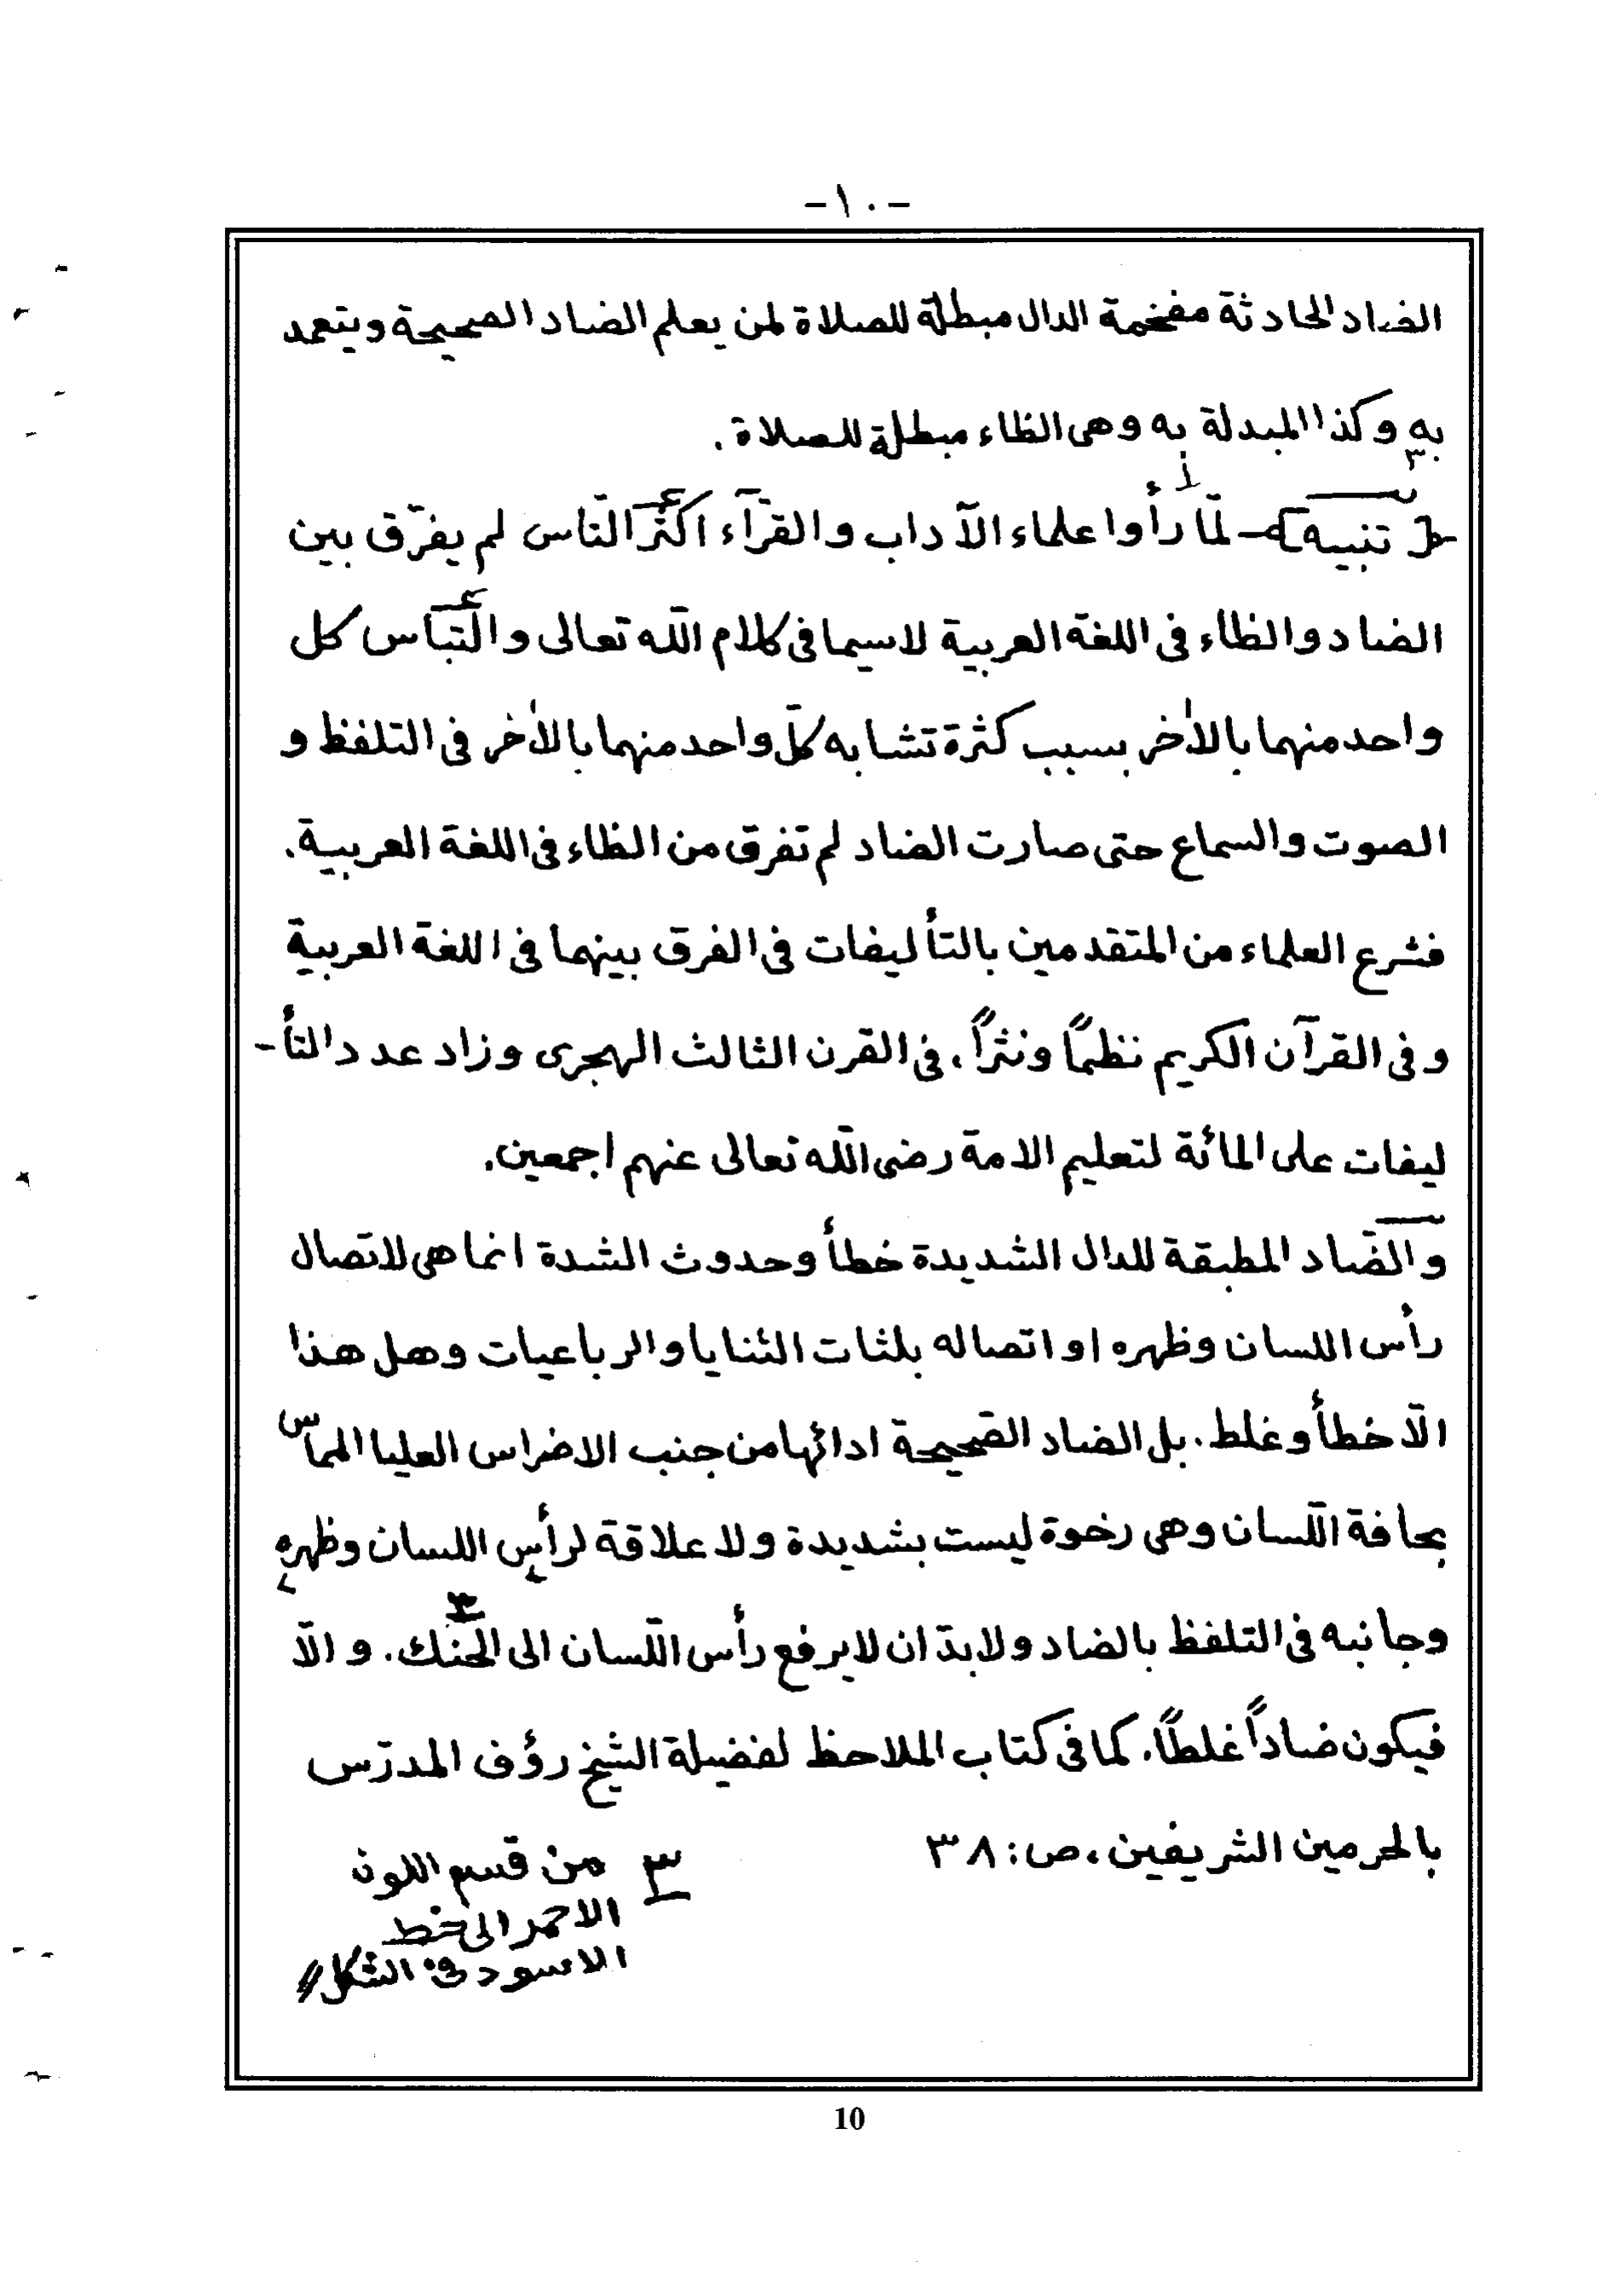 -١٠-
الضاد الحادثة مفخمة الدال مبطلة للصلاة لمن يعلم الضاد الصحيحة ويتعمد
به وكذا المبدلة به وهى الظاء مبطلة للصلاة.
٣
{تنبيه} - لمّا رأوا علماء الآداب والقرّآء اكثر النّاس لم يفرّق بين
الضاد والظاء فى اللغة العربية لاسيما فى كلام اللّه تعالى والتباس كل
واحد منهما بالأخر بسبب كثرة تشابه كلّ واحد منهما بالأخر فى التلفظ و
الصوت والسماع حتى صارت الضاد لم تفرق من الظاء فى اللغة العربية.
فشرع العلماء من المتقدمين بالتأليفات فى الفرق بينهما فى اللغة العربية
وفى القرآن الكريم نظمًا ونثرًا، فى القرن الثالث الهجرى وزاد عدد التأ-
ليفات على المائة لتعليم الامة رضى اللّه تعالى عنهم اجمعين.
والضّاد المطبقة للدال الشديدة خطأ وحدوث الشدة انما هى لاتصال
رأس اللسان وظهره او اتصاله بلثات الثنايا والرباعيات وهل هذا
الّا خطأ وغلط. بل الضاد الصّحيحة ادائها من جنب الاضراس العليا المماسّ
بحافة اللّسان وهى رخوة ليست بشديدة ولا علاقة لرأسِ اللسان وظهرهِ
وجانبه فى التلفظ بالضاد ولابدّ ان لايرفع رأس اللّسان الى الحنك. والّا
٣
فيكون ضاداً غلطًا. كما فى كتاب الملاحظ لفضيلة الشيخ رؤف المدرّس
بالحرمين الشريفين، ص: ٣٨
٣ من قسم اللون
الاحمر الى خط
الاسود فى الشكل //
10